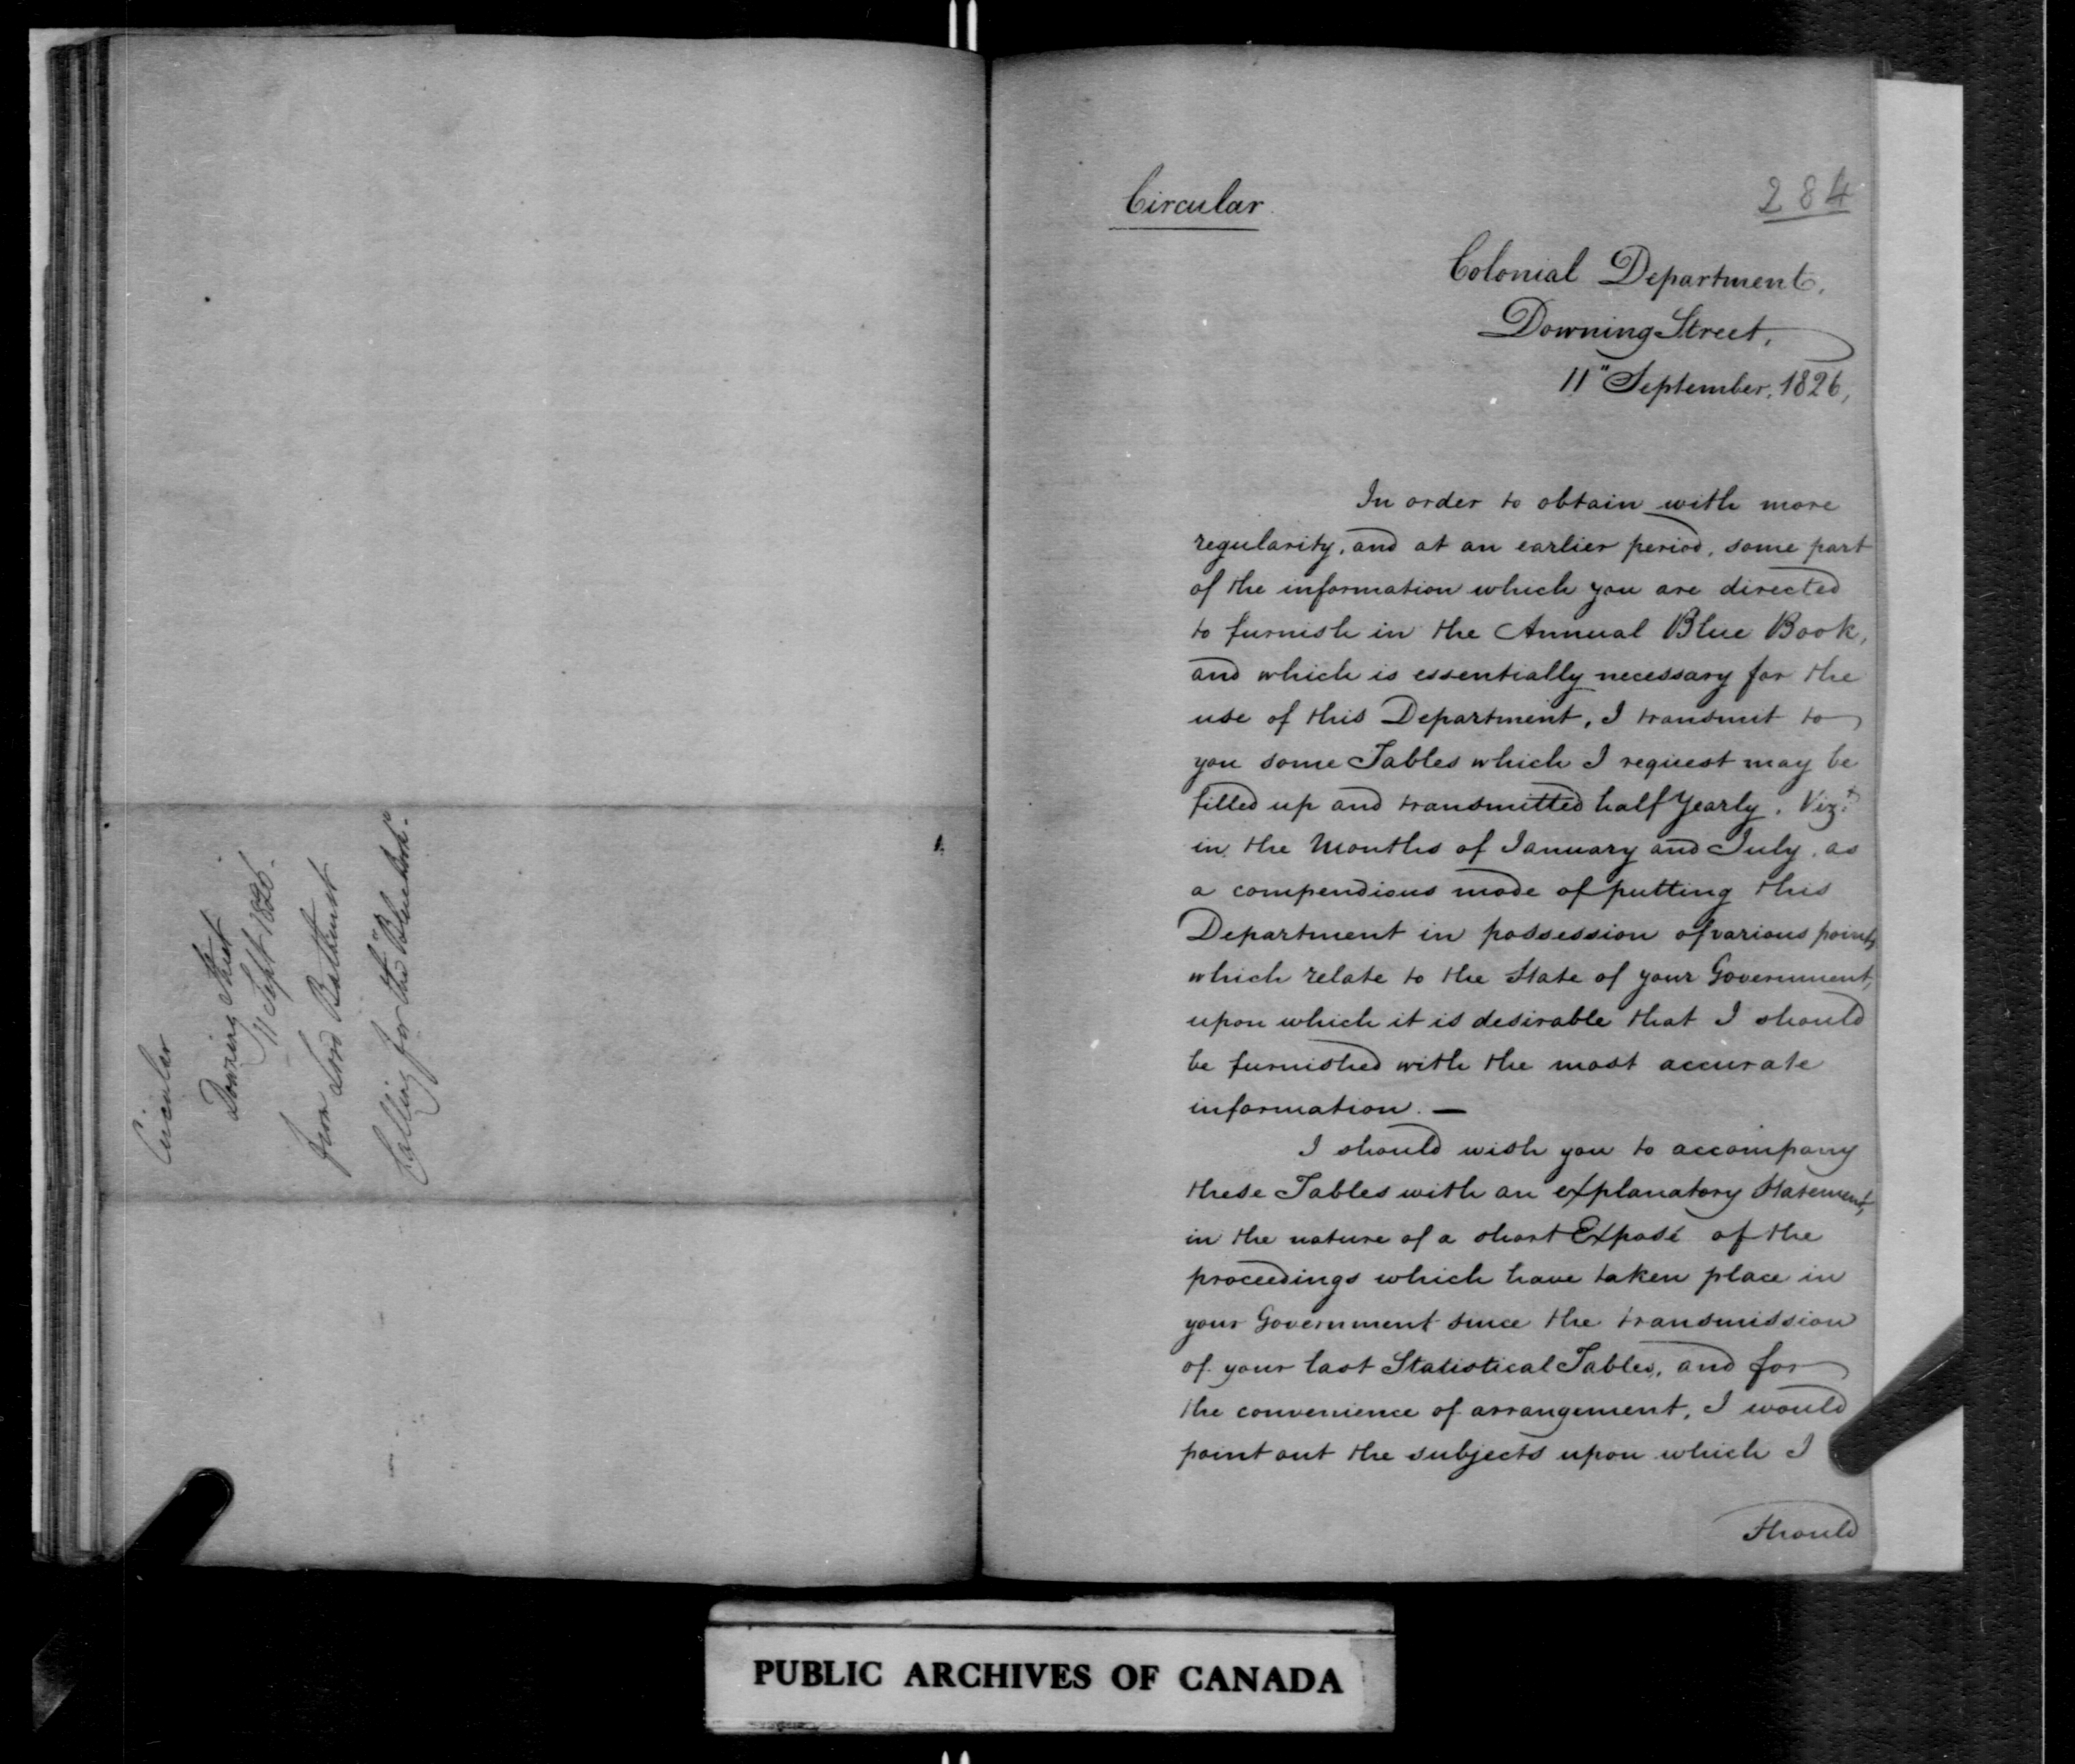 Circular
Downing Street
11 Sept 1826.
from Lord Bathurst
Calling for the "Bluebook".
Circular
284
Colonial Department.
Downing Street,
11" September, 1826,
In order to obtain with more
regularity, and at an earlier period, some part
of the information which you are directed
to furnish in the Annual Blue Book,
and which is essentially necessary for the
use of this Department, I transmit to
you some Tables which I request may be
filled up and transmitted half Yearly. Vizt.
in the Months of January and July, as
a compendious mode of putting this
Department in possession of various points
which relate to the State of your Government,
upon which it is desirable that I should
be furnished with the most accurate
information. —
I should wish you to accompany
these Tables with an explanatory Statement,
in the nature of a short Exposé of the
proceedings which have taken place in
your Government since the transmission
of your last Statistical Tables, and for
the convenience of arrangement, I would
point out the subjects upon which I
Should
PUBLIC ARCHIVES OF CANADA